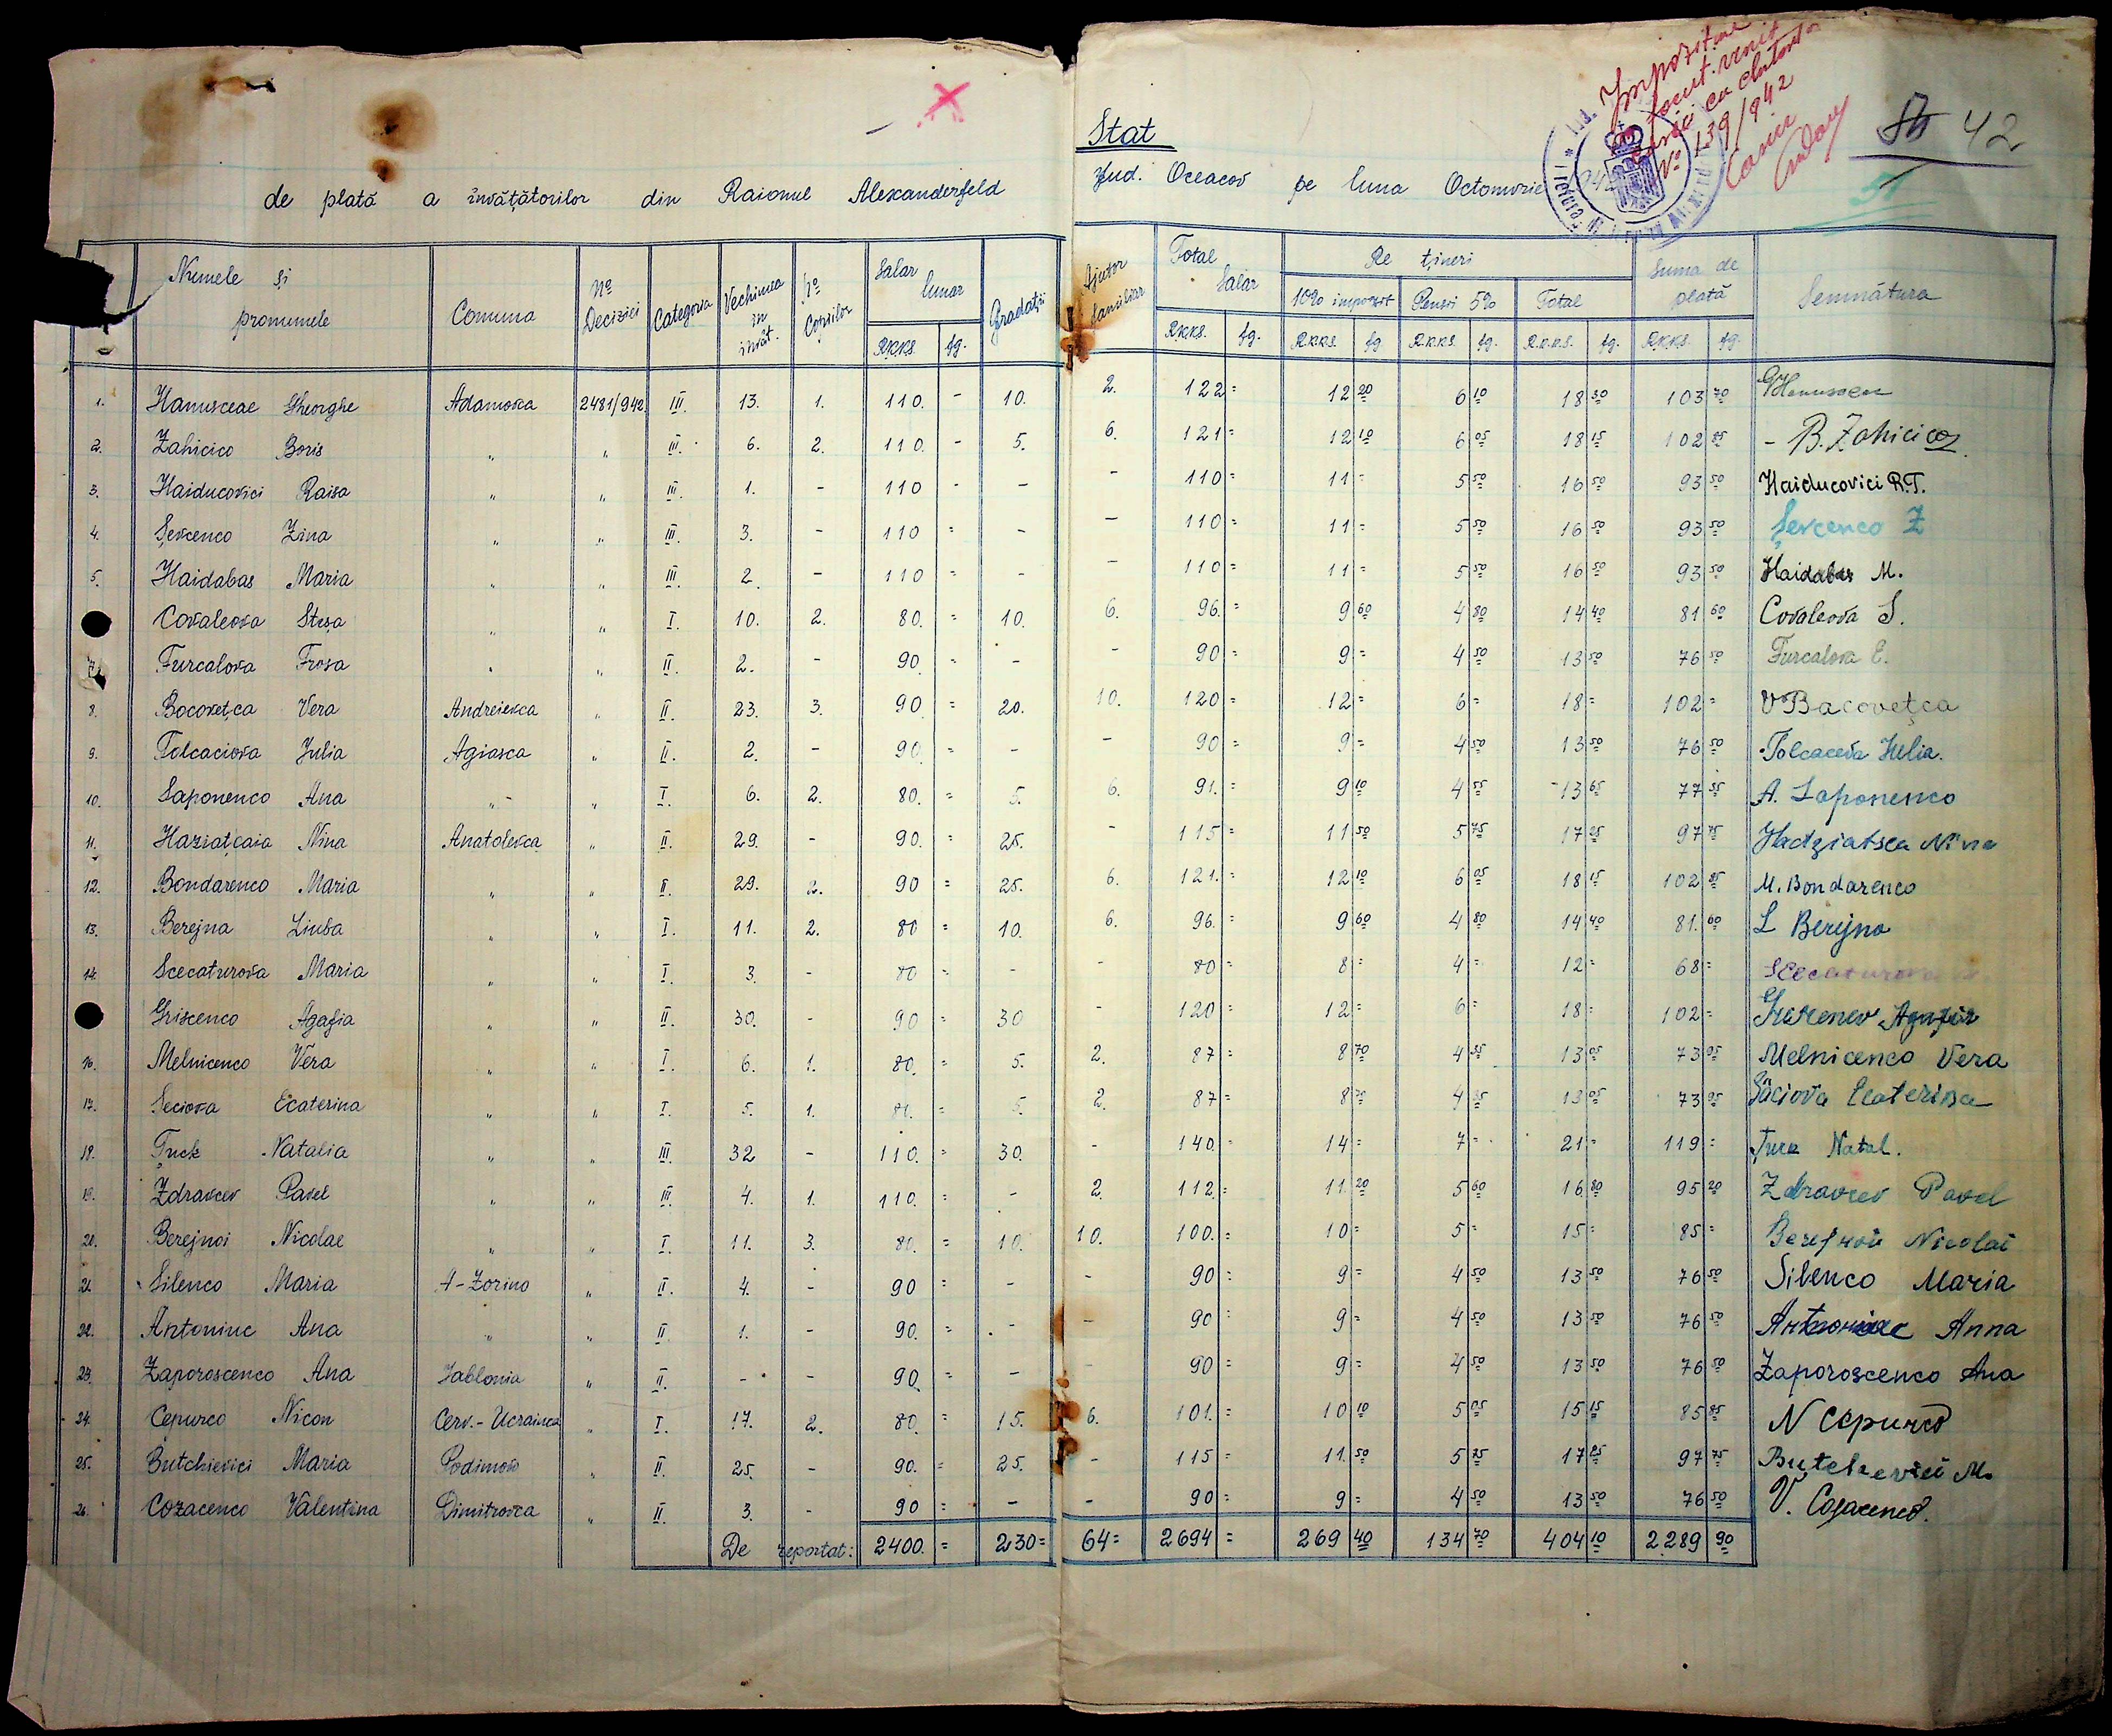 Stat
de plată a învățătorilor din Raionul Alexanderfeld Jud. Oceacov pe luna Octomvrie 942
Impozitul
No 139/942
Casier
42
51
Numele și pronumele | Comuna | No Deciziei | Categoria | Vechimea in invăt. | No Copiilor | Salar lunar RKKS. fg. | Gradații | Ajutor familiar | Total Salar RKKS. fg. | Rețineri 10% impozit RKKS. fg | Pensii 5% RKKS. fg. | Total RKKS. fg. | Suma de plată RKKS. fg. | Semnătura
1. Hanusceac Gheorghe Adamovca 2481/942 III. 13. 1. 110. - 10. 2. 122 = 12 20 6 10 18 30 103 70 GHanusceac
2. Zahicico Boris " " III. 6. 2. 110 - 5. 6. 121 = 12 10 6 05 18 15 102 85 - B. Zahicico
3. Haiducovici Raisa " " III. 1. - 110 - - - 110 = 11 = 5 50 16 50 93 50 Haiducovici R.T.
4. Șevcenco Zina " " III. 3. - 110 = - - 110 = 11 = 5 50 16 50 93 50 Șevcenco Z
5. Haidabas Maria " " III. 2. - 110 = - - 110 = 11 = 5 50 16 50 93 50 Haidabas M.
Covaleova Steșa " " I. 10. 2. 80. = 10. 6. 96. = 9 60 4 80 14 40 81 60 Covaleova S.
7. Furcalova Frosa " " II. 2. - 90. = - - 90 = 9 = 4 50 13 50 76 50 Furcalova E.
8. Bocovețca Vera Andreievca " II. 23. 3. 90 = 20. 10. 120 = 12 = 6 = 18 = 102 = V Bacovețca
9. Tolcaciova Julia Agiasca " II. 2. - 90. = - - 90 = 9 = 4 50 13 50 76 50 Tolcaceva Iulia.
10. Saponenco Ana " - " I. 6. 2. 80. = 5. 6. 91. = 9 10 4 55 13 65 77 35 A. Saponenco
11. Haziatcaia Nina Anatolevca " II. 29. - 90. = 25. - 115 = 11 50 5 75 17 25 97 75 Hadziatsca Nina
12. Bondarenco Maria " " II. 29. 2. 90 = 25. 6. 121. = 12 10 6 05 18 15 102 85 M. Bondarenco
13. Berejna Liuba " " I. 11. 2. 80 = 10. 6. 96. = 9 60 4 80 14 40 81. 60 L Berejna
14. Scecaturova Maria " " I. 3. - 80 = - - 80 = 8 = 4 = 12 = 68 = Scecaturova
Griscenco Agafia " " II. 30. - 90 = 30 - 120 = 12 = 6 = 18 = 102 =
16. Melnicenco Vera " " I. 6. 1. 80. = 5. 2. 87 = 8 70 4 35 13 05 73 95 Melnicenco Vera
17. Seciova Ecaterina " " I. 5. 1. 80. = 5. 2. 87 = 8 70 4 35 13 05 73 95 Săciova Ecaterina
18. Țuck Natalia " " III. 32 - 110. = 30. - 140. = 14 = 7 = 21 = 119 = Natal.
19. Zdravcev Pavel " " III. 4. 1. 110. = - 2. 112. = 11. 20 5 60 16 80 95 20 Zdravcev Pavel
20. Berejnoi Nicolae " " I. 11. 3. 80. = 10. 10. 100. = 10 = 5 = 15 = 85 = Berejnoi Nicolai
21. Silenco Maria A-Zorino " II. 4. - 90 = - - 90 = 9 = 4 50 13 50 76 50 Silenco Maria
22. Antoniuc Ana " " II. 1. - 90. = - - 90 = 9 = 4 50 13 50 76 50 Antoniuc Anna
23. Zaporoscenco Ana Jablonia " II. - - 90. = - - 90 = 9 = 4 50 13 50 76 50 Zaporoscenco Ana
24. Cepurco Nicon Cerv.-Ucrainca " I. 17. 2. 80. = 15. 6. 101. = 10 10 5 05 15 15 85 85 N Cepurco
25. Butchievici Maria Podimovo " II. 25. - 90. = 25. - 115 = 11. 50 5 75 17 25 97 75 Butchevici M.
26. Cozacenco Valentina Dimitrovca " II. 3. - 90 = - - 90 = 9 = 4 50 13 50 76 50 V. Cozacenco.
De reportat: 2400. = 230 = 64 = 2694 = 269 40 134 70 404 10 2289 90